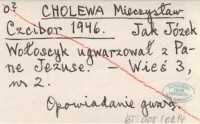 oz CHOLEWA Mieczysław
Czcibor 1946. Jak Józek
Wołoszyk ugwarzował z Pa-
ne Jezuse. – Wieś 3,
nr 2.
Opowiadanie gwarą.